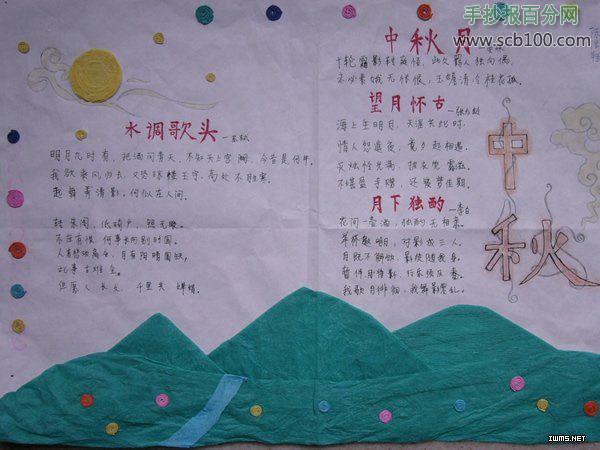 手抄报百分网
www.scb100.com
水调歌头
—苏轼
明月几时有，把酒问青天，不知天上宫阙，今昔是何年。
我欲乘风归去，又恐琼楼玉宇，高处不胜寒。
起舞弄清影，何似在人间。
转朱阁，低绮户，照无眠。
不应有恨，何事长向别时圆。
人有悲欢离合，月有阴晴圆缺，
此事古难全。
但愿人长久，千里共婵娟。
中秋月
十轮霜影转庭梧，此夕羁人独向隅。
未必素娥无怅恨，玉蟾清冷桂花孤。
望月怀古
—张九龄
海上生明月，天涯共此时，
情人怨遥夜，竟夕起相思。
灭烛怜光满，披衣觉露滋。
不堪盈手赠，还寝梦佳期。
月下独酌
—李白
花间一壶酒，独酌无相亲。
举杯邀明月，对影成三人。
月既不解饮，影徒随我身。
暂伴月将影，行乐须及春。
我歌月徘徊，我舞影零乱。
中秋
IWMS.NET